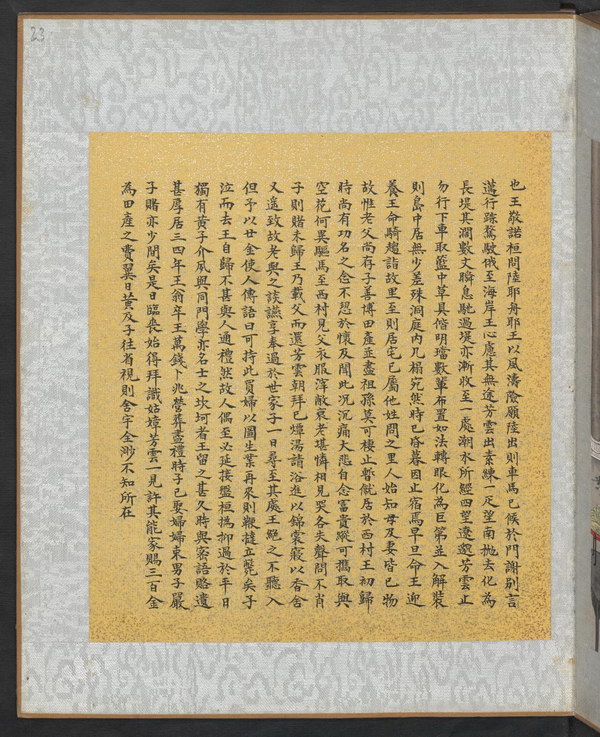 也王敬諾桓問陸耶舟耶王以風濤險願陸出則車馬已候於門謝別言
邁行踪騖駛俄至海岸王心慮其無途芳雲出素練一疋望南拋去化為
長堤其濶數丈瞬息馳過堤亦漸收至一處潮水所經四望遼邈芳雲止
勿行下車取籃中草具偕明璫數輩布置如法轉眼化為巨第並入解裝
則島中居無少差殊洞庭內几榻宛然時已昏暮因止宿焉早旦命王迎
養王命騎趨詣故里至則居宅已屬他姓問之里人始知母及妻皆已物
故惟老父尚存子善博田產並盡祖孫莫可棲止暫僦居於西村王初歸
時尚有功名之念不恝於懷及聞此況沉痛大悲自念富貴縱可攜取與
空花何異驅馬至西村見父衣服滓敝衰老堪憐相見哭各失聲問不肖
子則賭未歸王乃載父而還芳雲朝拜已燂湯請浴進以錦裳寢以香舍
又遙致故老與之談讌享奉過於世家子一日尋至其處王絕之不聽入
但予以廿金使人傳語曰可持此買婦以圖生業再來則鞭撻立斃矣子
泣而去王自歸不甚與人通禮然故人偶至必延接盤桓撝抑過於平日
獨有黃子介夙與同門學亦名士之坎坷者王留之甚久時與密語賂遺
甚厚居三四年王翁卒王萬錢卜兆營葬盡禮時子已娶婦婦束男子嚴
子賭亦少間矣是日臨喪始得拜識姑嫜芳雲一見許其能家賜三百金
為田產之費翼日黃及子往省視則舍宇全渺不知所在
23